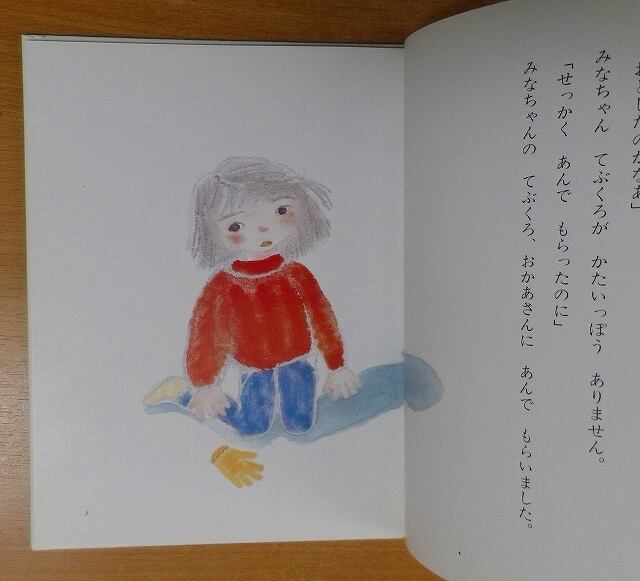 おとしたのかなあ」
みなちゃん てぶくろが かたいっぽう ありません。
「せっかく あんで もらったのに」
みなちゃんの てぶくろ、おかあさんに あんで もらいました。
3